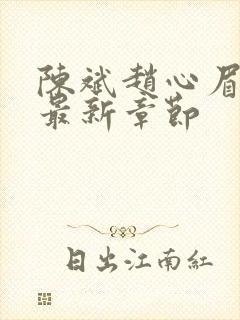 陳斌趙心眉
最新章節
日出江南紅